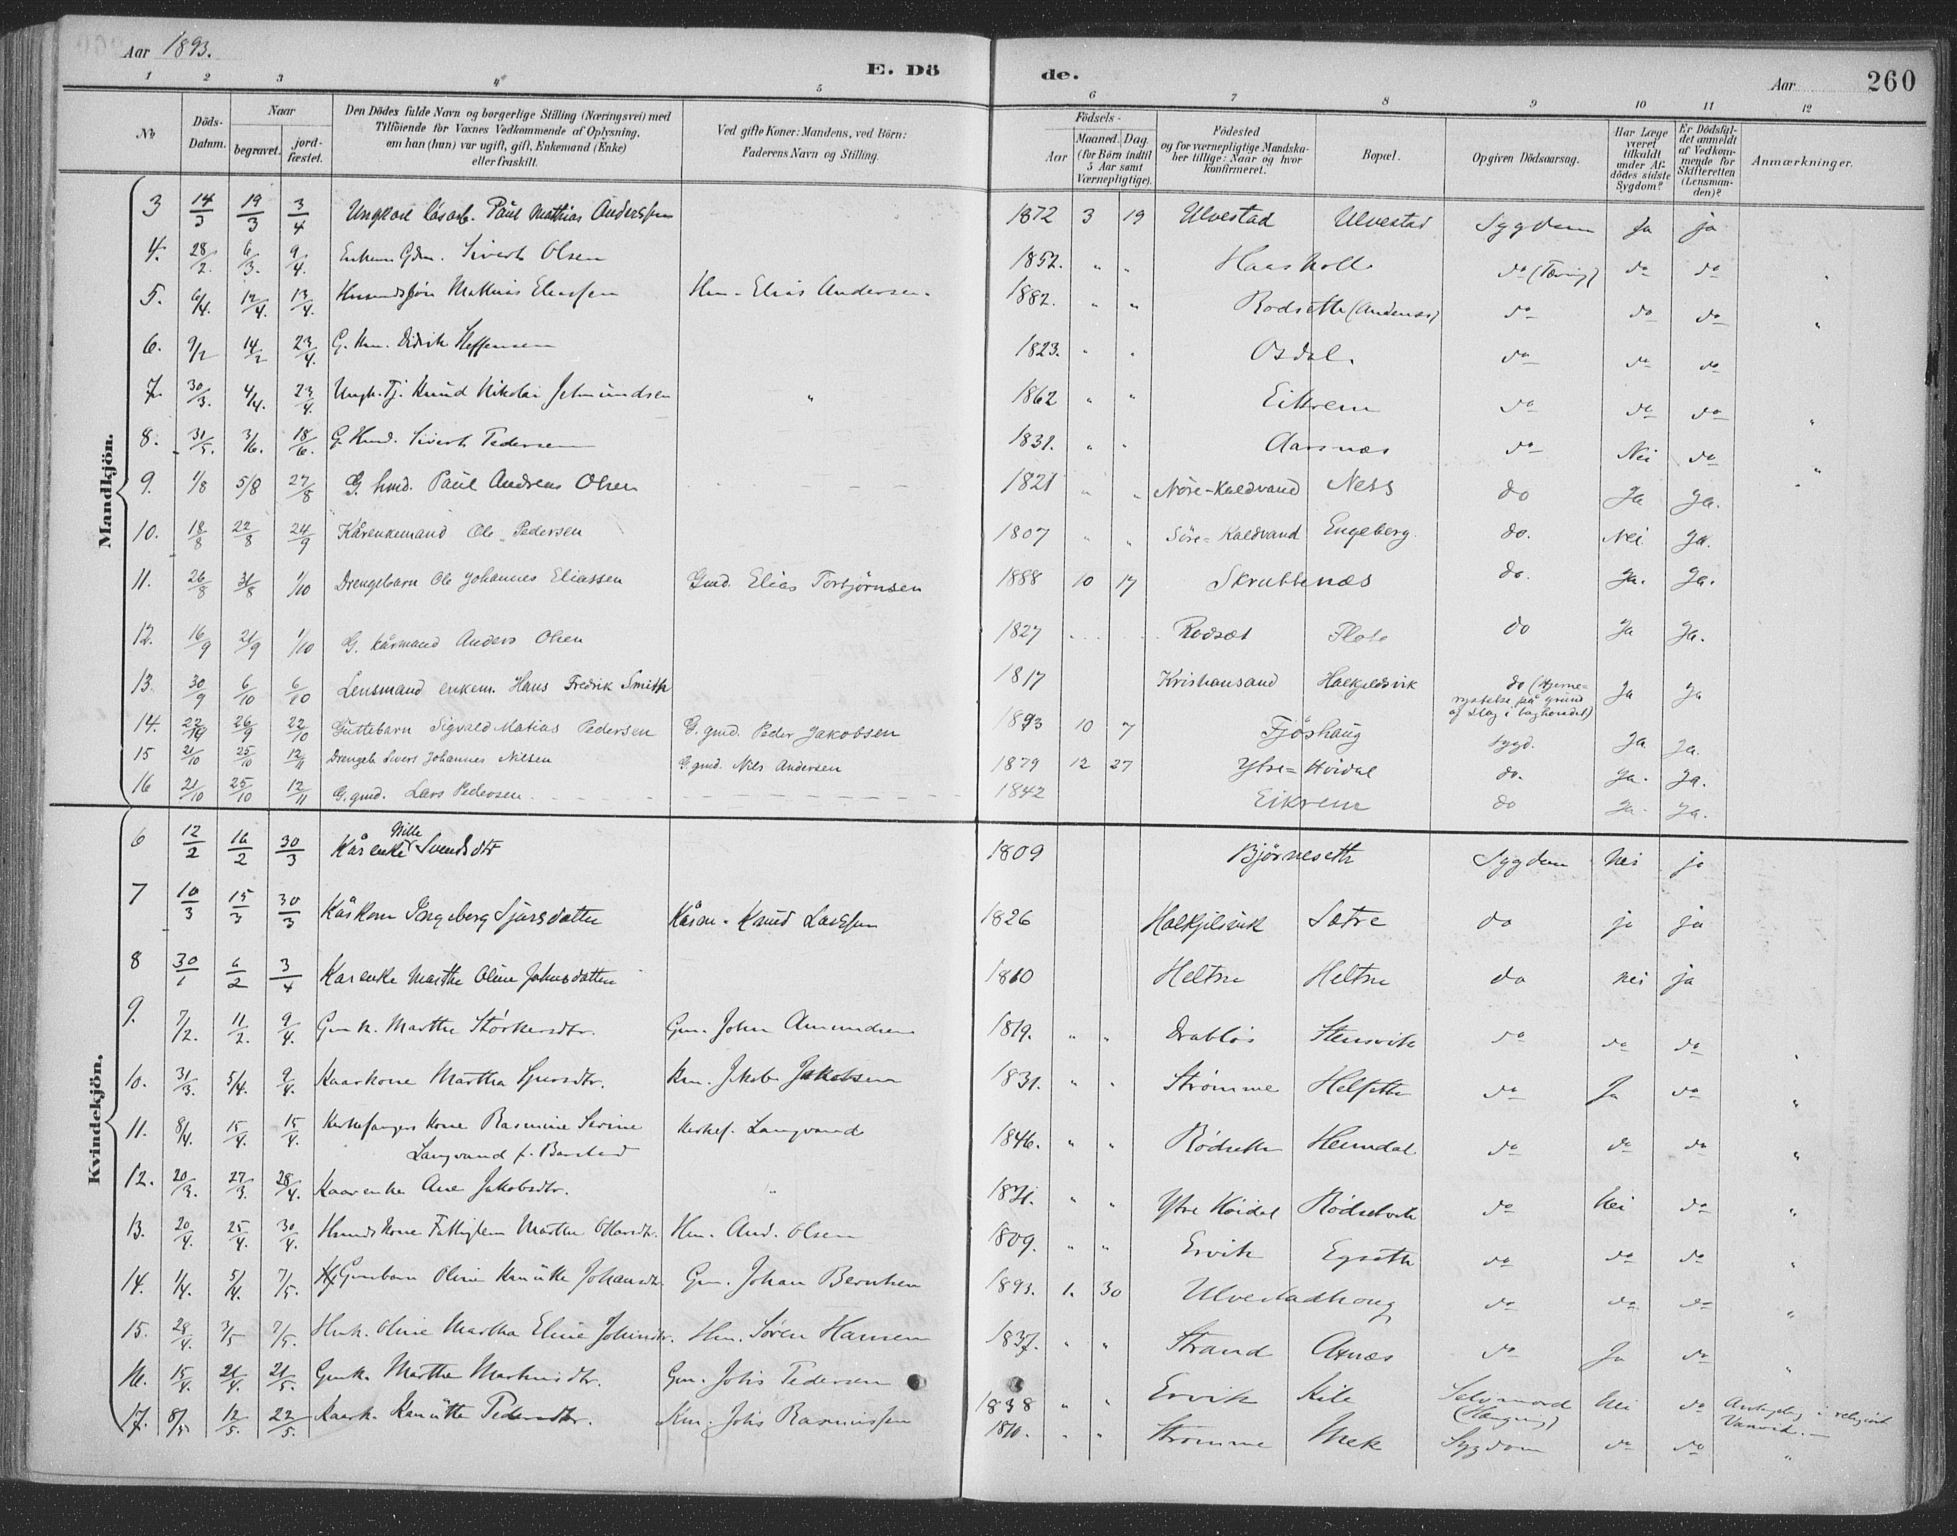 Aar 1893.
E. Dö de.
Aar 260
1 2 3 4 5 6 7 8 9 10 11 12
No
Döds-Datum.
Naar begravet. jord-fæstet.
Den Dödes fulde Navn og borgerlige Stilling (Næringsvei) med Tilföiende for Voxnes Vedkommende af Oplysning, om han (hun) var ugift, gift, Enkemand (Enke) eller fraskilt.
Ved gifte Koner: Mandens, ved Börn: Faderens Navn og Stilling.
Födsels-
Aar Maaned. Dag. (for Börn indtil 5 Aar samt Værnepligtige).
Födested og for værnepligtige Mandskaber tillige: Naar og hvor konfirmeret.
Bopæl.
Opgiven Dödsaarsag.
Har Læge været tilkaldt under Afdödes sidste Sygdom?
Er Dödsfaldet anmeldt af Vedkommende for Skifteretten (Lensmanden)?
Anmærkninger.
Mandkjön.
3 14/3 19/3 3/4 Ungkarl Paul Mathias Anderssen 1872 3 19 Ulvestad Ulvestad Sygdom Ja ja
4. 28/2. 6/3. 9/4. Enkem. Gdm. Sivert Olsen 1852. " " do (Tæring) do do
5. 6/4. 12/4. 13/4. Mathias Eliassen Hm. Elias Andersen 1882. " " Rodseth (Andenæs) do do do
6. 9/2 14/2 23/4. G. Km. Didrik Steffensen 1823. " " Osdal. do do do
7. 30/3. 4/4. 23/4. Ungk. Tj. Knud Nikolai 1862 " " Eikrem do do do
8. 31/5. 3/6. 18/6. G. Hmd. Sivert Pedersen 1831. " " Aarsnæs do Nei do
9. 1/8 5/8 27/8 G. hmd. Paul Andreas Olsen 1821 " " Nöre-Kaldvand Ness do Ja Ja.
10. 18/8 22/8 24/9 Kårenkemand Ole Pedersen 1807 " " Söre-Kaldvand Engeberg. do. Nei Ja.
11. 26/8 31/8 1/10 Drengebarn Ole Johannes Eliassen Gmd. Elias Torbjørnsen 1888 10 17 Skrubbenæs do. Ja. Ja.
12. 16/9 21/9 1/10 G. kårmand Anders Olsen 1827 Rodsæt Flote do Ja Ja.
13. 30/9 6/10 6/10 Lensmand enkem. Hans Fredrik Smith 1817 Kristiansand Halkjeldsvik do (Hjernerystelse på grund af slag i baghovedet) Ja Ja
14. 26/9 22/10 Guttebarn Sigvald Matias Pedersen G. gmd. Peder Jakobsen 1893 10 7 Fjøshaug Sygd. Ja Ja.
15 21/10 25/10 12/11 Drengeb. Sivert Johannes Nilsen G. gmd. Nils Andersen 1879 12 27 Ytre-Hvidal do. Ja. Ja.
16 21/10 25/10 12/11 G. gmd. Lars Pedersen 1842 Eikrem do Ja. Ja.
Kvindekjön.
6 12/2 16/2 30/3 Kårenke Nille Svendsdtr 1809 Bjørneseth Sygdom nei ja
7 10/3 15/3 30/3 Kåskone Ingeberg Sjursdatter Kåsm. Knud Larssen 1826 Halkjelsvik Sætre do ja ja
8 30/1 6/2 3/4 Karenke Marthe Oline Johnsdatter 1810 Heltne Heltne do nei ja
9. 7/2. 11/2. 9/4. Gmk. Marthe Størkersdtr. Gm. John Amundsen 1819. " " Drabløs Stensvik do do do
10. 31/3. 5/4. 9/4. Kaarkone Martha Sjursdtr. Km. Jakob Jakobsen 1831. " " Strømme Helseth do Ja do
11. 8/4. 15/4. 15/4. Kirkesangers Kone Rasmine Serine Langvand f. Barstad Kirkes. Langvand 1846. " " Rödseth Heimdal do do do
12. 20/3. 27/3. 28/4. Kaarenke Ane Jakobsdtr. " " " Ytre Hoidal Rödsetvik do Nei do
13. 20/4. 25/4. 30/4. Hmndskone Fattiglem Marthe Olavsdtr. Hm. And. Olsen 1809. " " Ervik Egseth do do do
14. 1/4. 5/4. 7/5. Gmbarn Oline Knutte Johansdtr Gm. Johan Berntsen 1893. 1. 30 Ulvestadhoug do do do
15. 28/4. 3/5 7/5. Hmk. Oline Martha Eline Johnsdtr. Hm. Søren Hansen 1837. " " Strand Aanæs do Ja do
16. 15/4. 21/4. 21/5. Gmk. Marthe Martinsdtr. Gm. Johs Pedersen 1838 " " Ervik Kile Selvmord (Hængning) Nei do i religiöst Vanvid.
17. 8/5 12/5. 22/5. Kaark. Knutte Pedersdtr. Km. Johs Rasmussen 1810. " " Strømme Sygdom do do